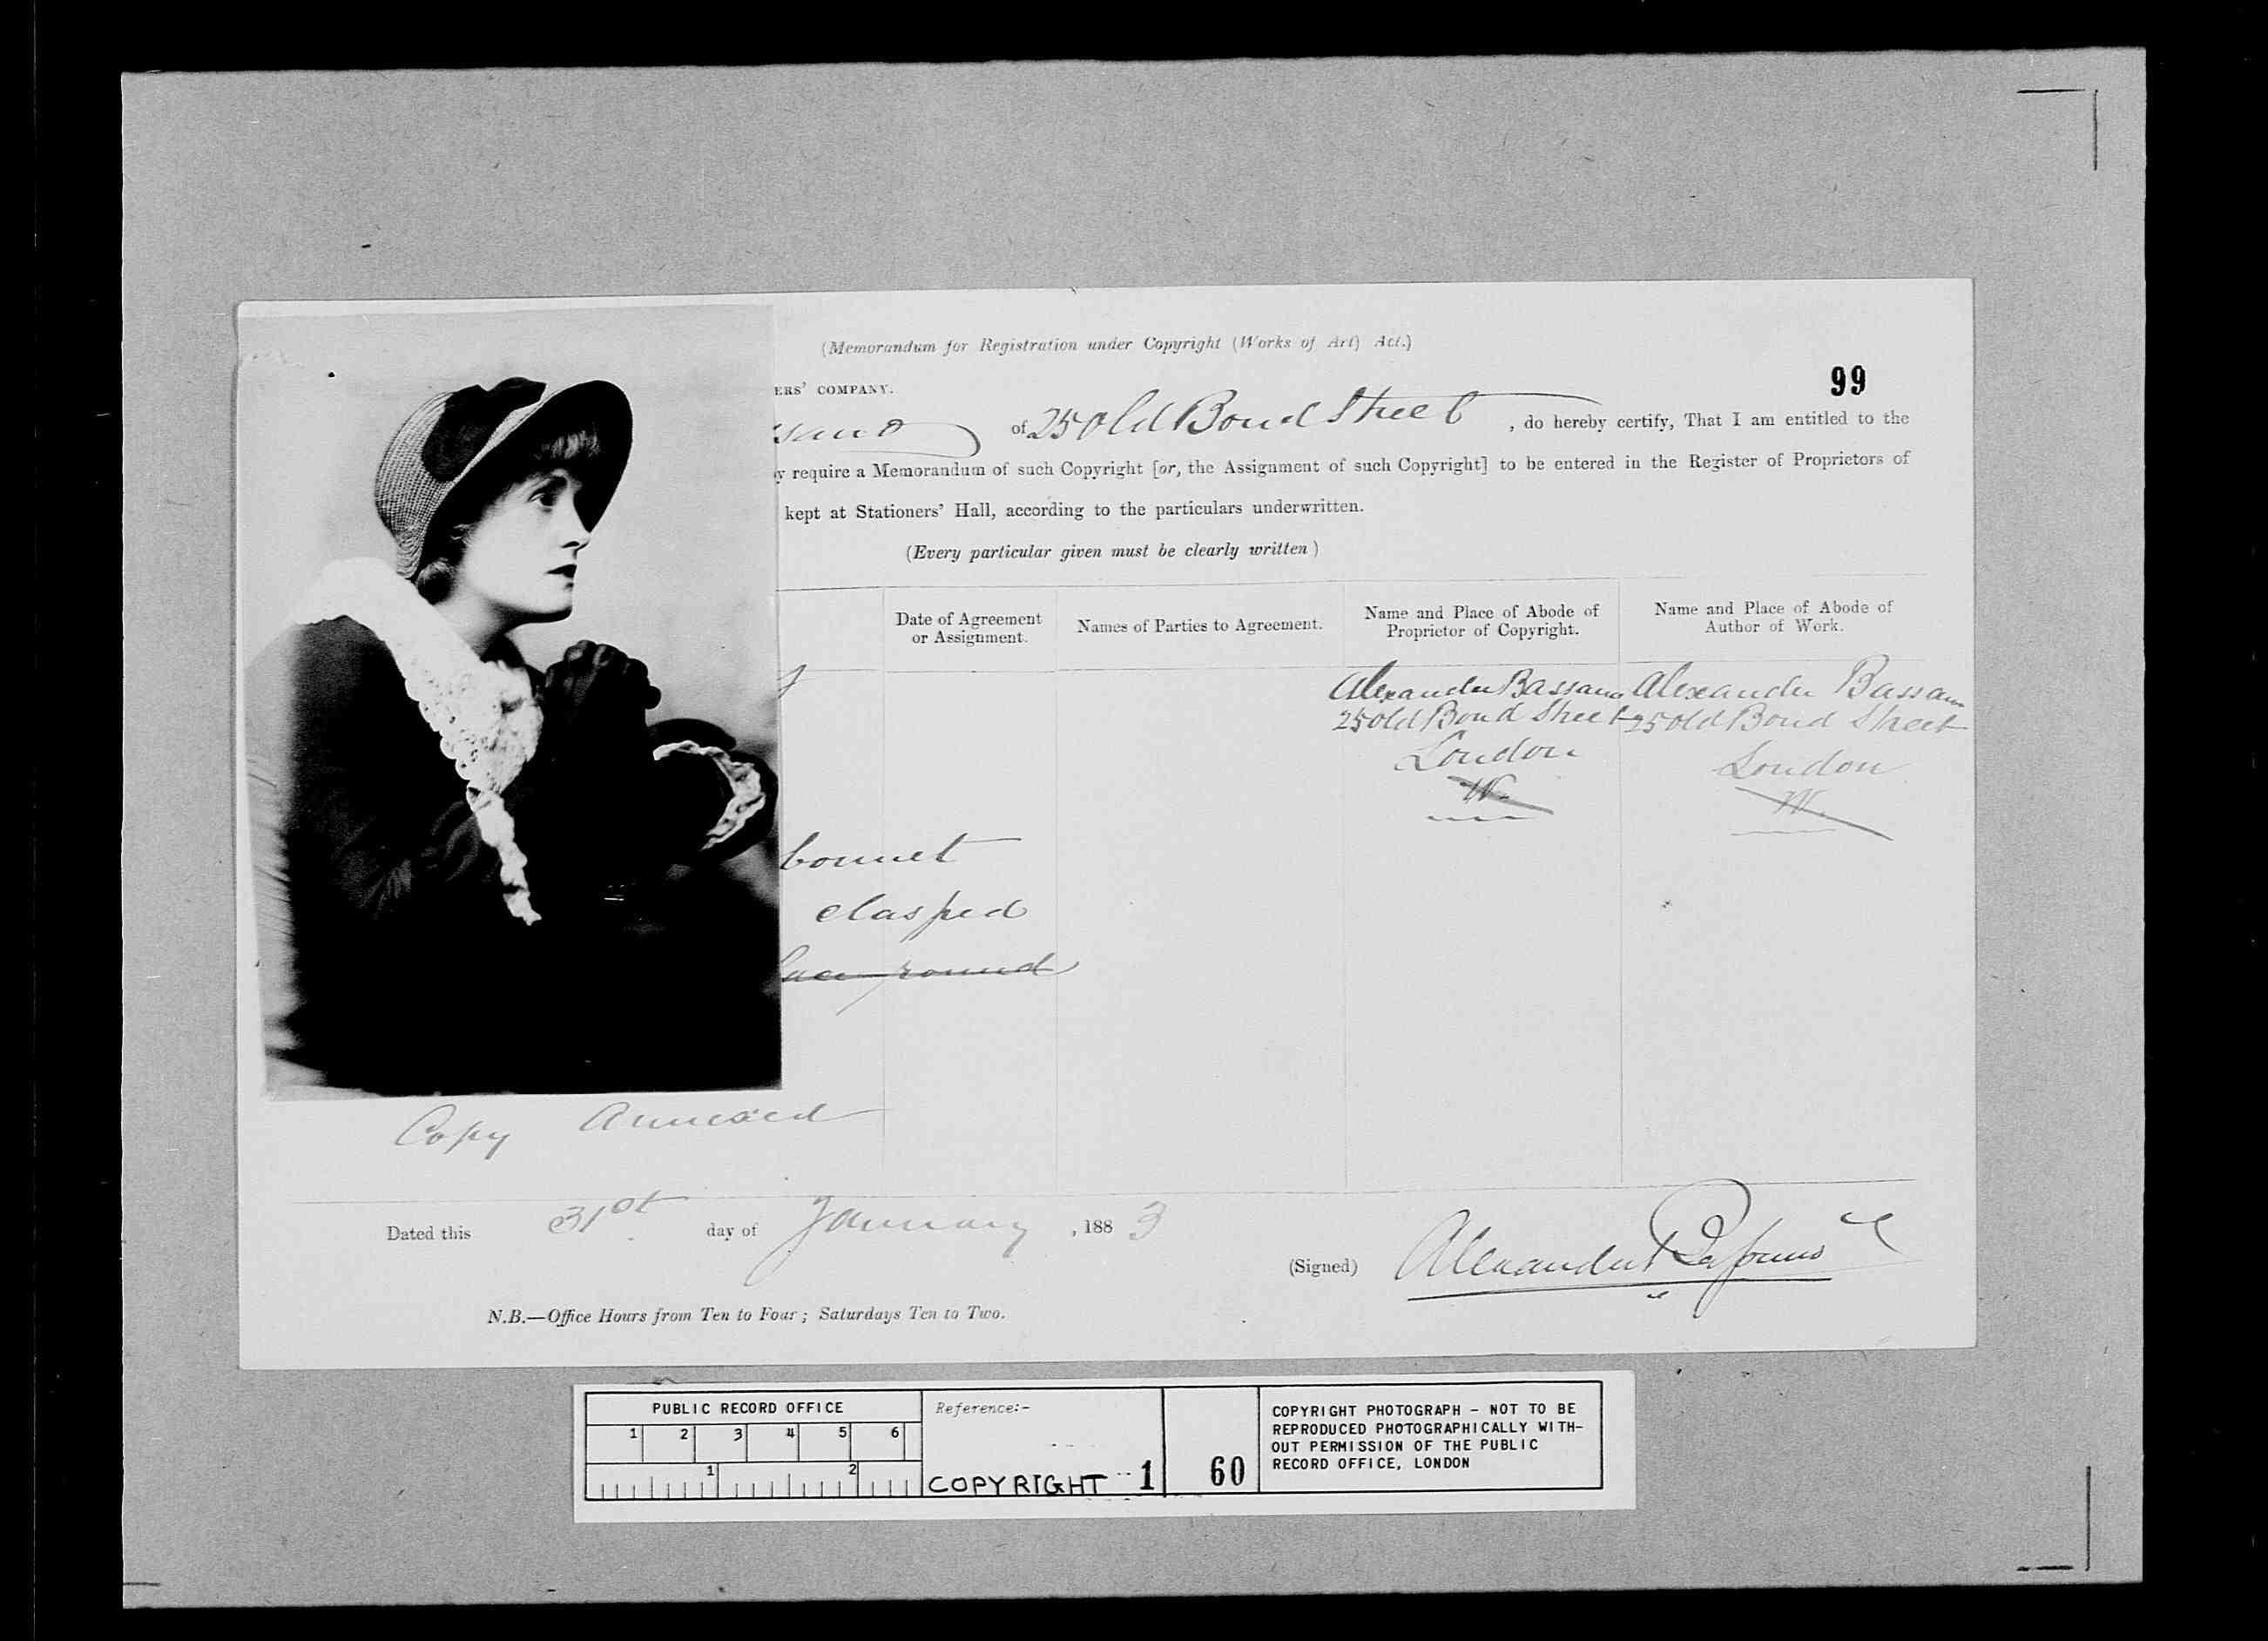 (Memorandum for Registration under Copyright (Works of Art) Act.)
99
ERS' COMPANY.
sano of 25 Old Bond Street , do hereby certify, That I am entitled to the
y require a Memorandum of such Copyright [or, the Assignment of such Copyright] to be entered in the Register of Proprietors of
kept at Stationers' Hall, according to the particulars underwritten.
(Every particular given must be clearly written)
Date of Agreement
or Assignment.
Names of Parties to Agreement.
Name and Place of Abode of
Proprietor of Copyright.
Name and Place of Abode of
Author of Work.
Alexander Bassano
25 Old Bond Street
London
W.
Alexander Bassano
25 Old Bond Street
London
W.
bonnet
clasped
lace round
Copy Annexed
Dated this 31st day of January , 1883
(Signed) Alexander Bassano
N.B.—Office Hours from Ten to Four; Saturdays Ten to Two.
PUBLIC RECORD OFFICE
1 2 3 4 5 6
1 2
Reference:-
COPYRIGHT 1
60
COPYRIGHT PHOTOGRAPH - NOT TO BE
REPRODUCED PHOTOGRAPHICALLY WITH-
OUT PERMISSION OF THE PUBLIC
RECORD OFFICE, LONDON